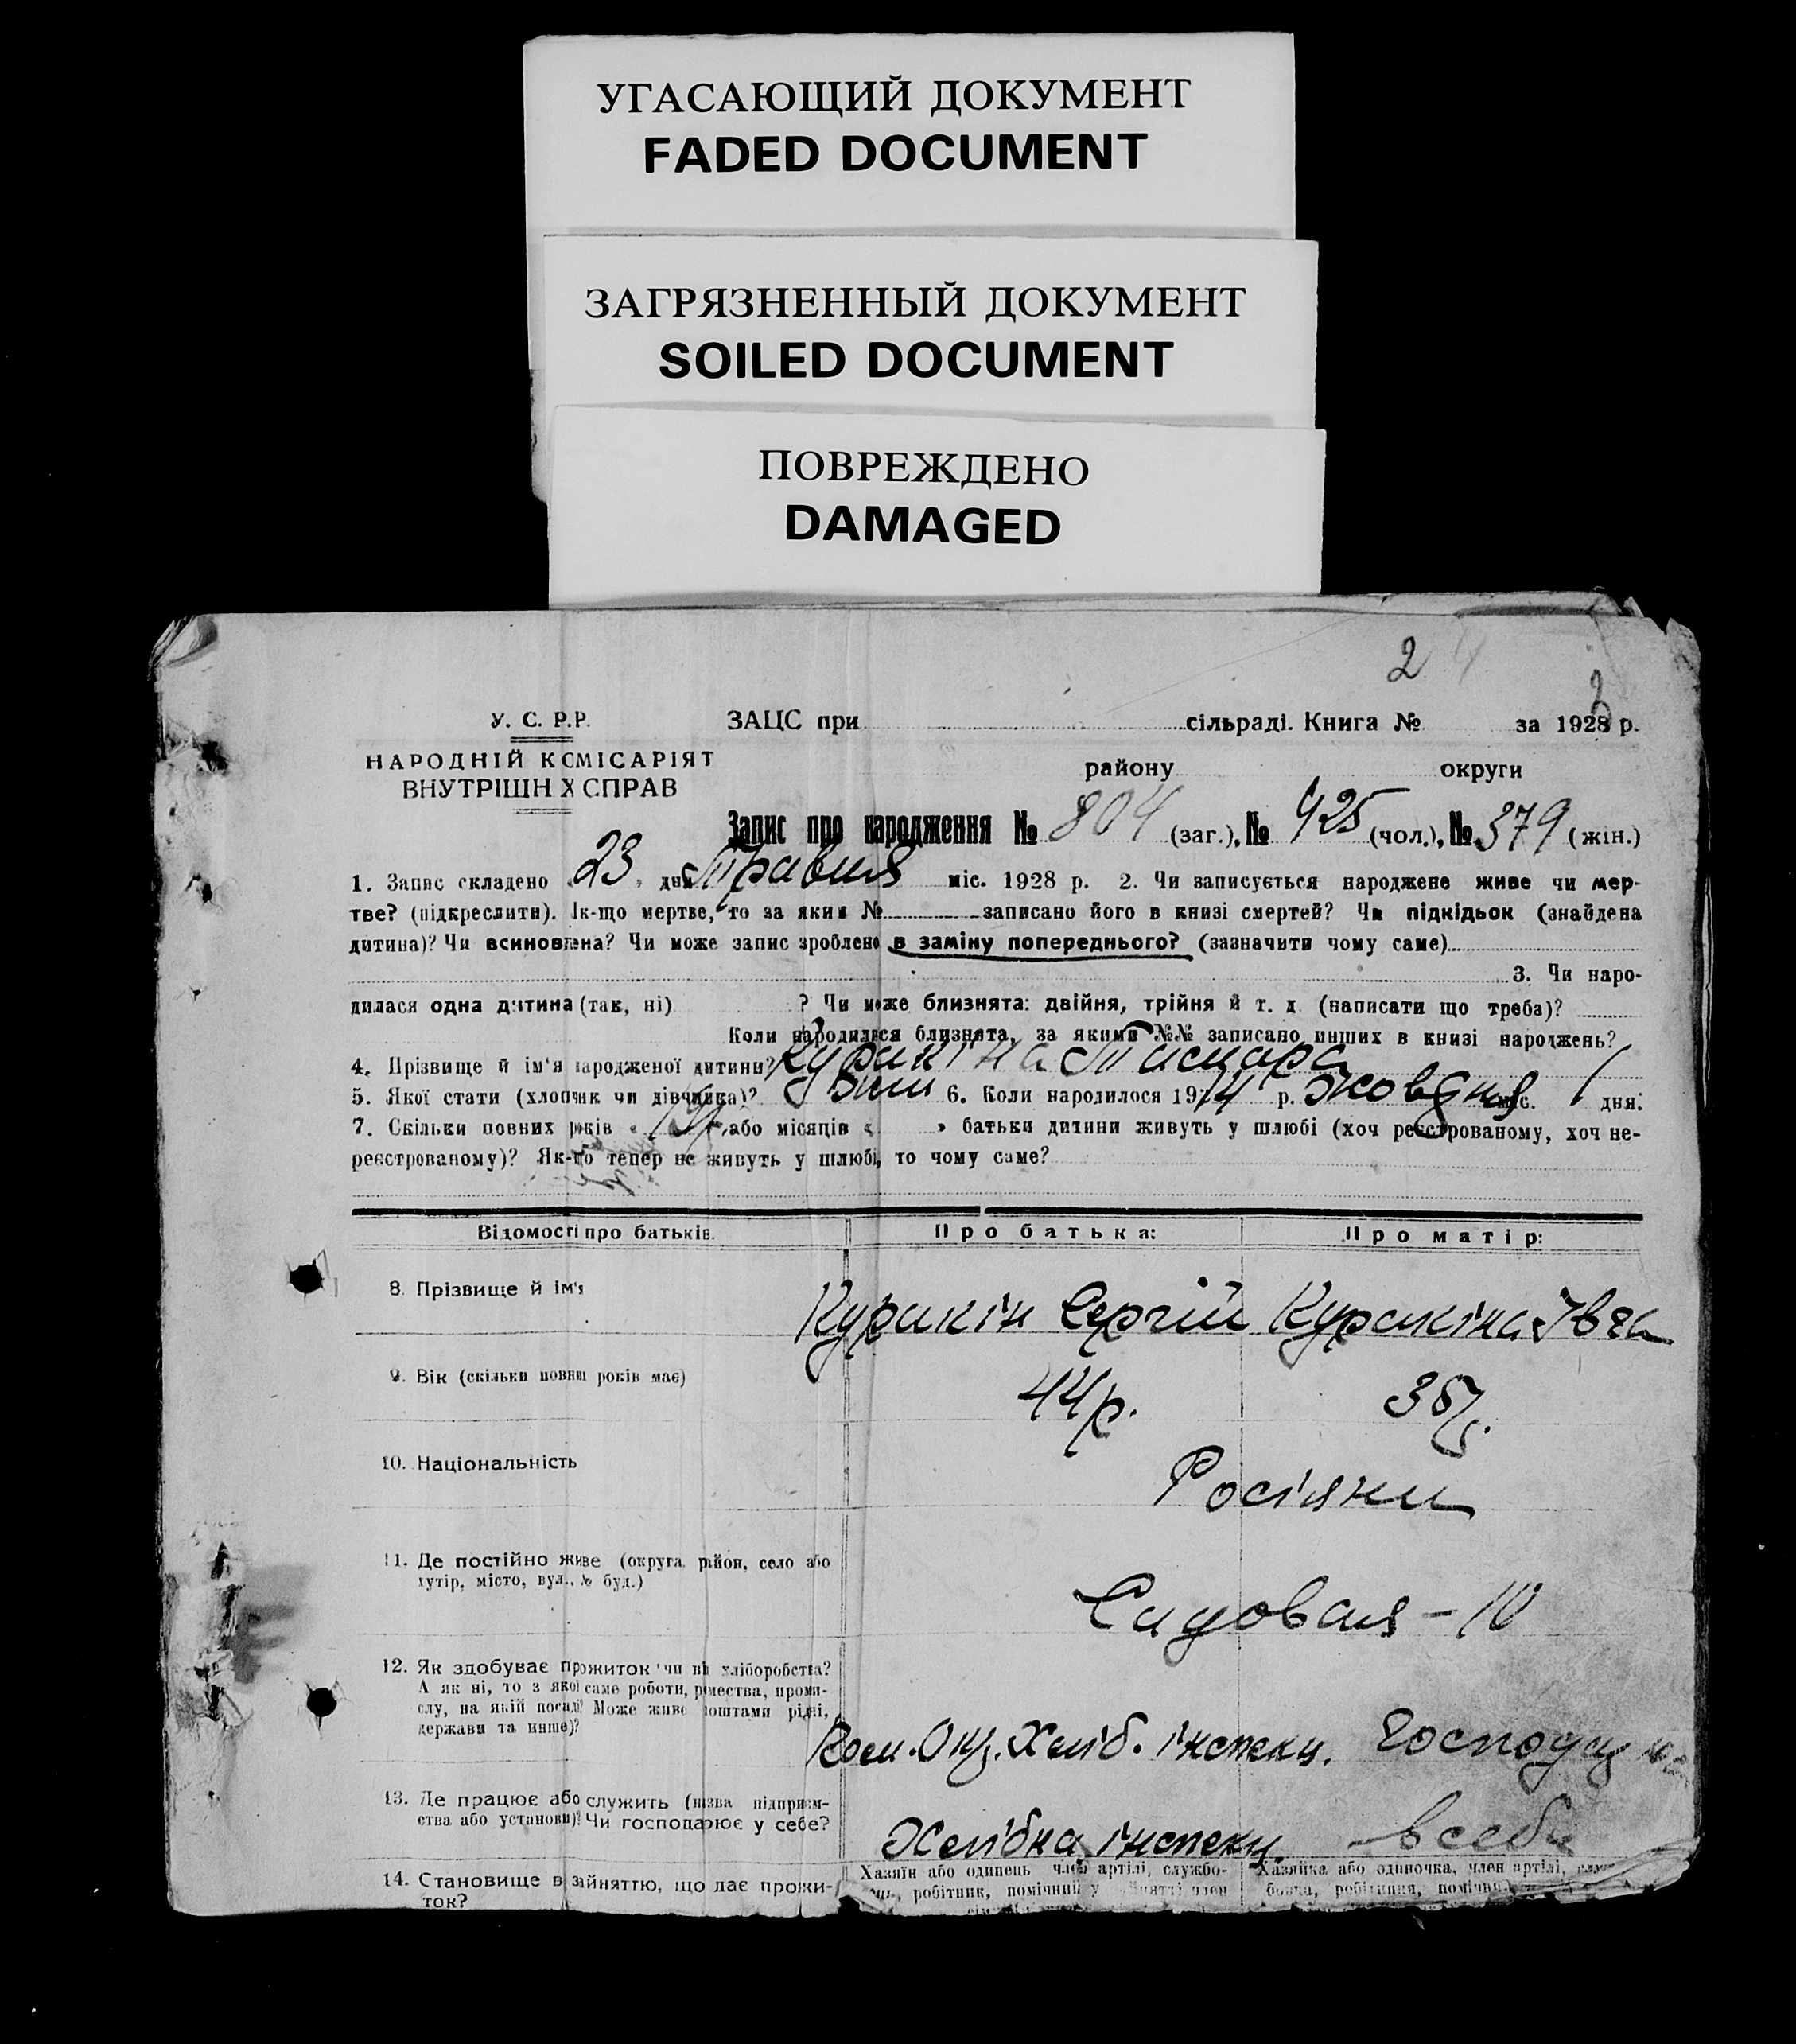 УГАСАЮЩИЙ ДОКУМЕНТ
FADED DOCUMENT
ЗАГРЯЗНЕННЫЙ ДОКУМЕНТ
SOILED DOCUMENT
ПОВРЕЖДЕНО
DAMAGED
2
У. С. Р.Р.
ЗАЦС при сільраді. Книга № за 1928 р.
НАРОДНІЙ КОМІСАРІЯТ
ВНУТРІШНІХ СПРАВ
району округи
Запис про народження № 804 (заг.), № 425 (чол.), № 379 (жін.)
1. Запис складено «23» дня Травня міс. 1928 р. 2. Чи записується народжене живе чи мер-
тве? (підкреслити). Як-що мертве, то за яким № записано його в книзі смертей? Чи підкідьок (знайдена
дитина)? Чи всиновлена? Чи може запис зроблено в заміну попереднього? (зазначити чому саме)
3. Чи наро-
дилася одна дитина (так, ні) ? Чи може близнята: двійня, трійня й т. д. (написати що треба)?
Коли народилися близнята, за якими №№ записано инших в книзі народжень?
4. Прізвище й ім'я народженої дитини? Куракіна Тамара
5. Якої стати (хлопчик чи дівчинка)? 6. Коли народилося 1914 р. Жовтня міс. 1 дня.
7. Скільки повних років « » або місяців « » батьки дитини живуть у шлюбі (хоч реєстрованому, хоч не-
реєстрованому)? Як-що тепер не живуть у шлюбі, то чому саме?
Відомості про батьків. Про батька: Про матір:
8. Прізвище й ім'я Куракін Сергій Куракіна
9. Вік (скільки повних років має) 44 р. 35 р.
10. Національність Росіяни
11. Де постійно живе (округа, район, село або
хутір, місто, вул., № буд.)
Садовая - 10
12. Як здобуває прожиток чи від хліборобства?
А як ні, то з якої саме роботи, ремества, проми-
слу, на якій посаді? Може живе коштами рідні,
держави та инше)?
Окр. Хліб. інспекц. Господар
13. Де працює або служить (назва підприєм-
ства або установи)? Чи господарює у себе?
Хлібна інспекц. в себе
14. Становище в зайняттю, що дає прожи-
ток?
Хазяїн або одинець член артілі, службо-
робітник, помічний у занятті член
Хазяйка або одиночка, член артілі,
робітниця,